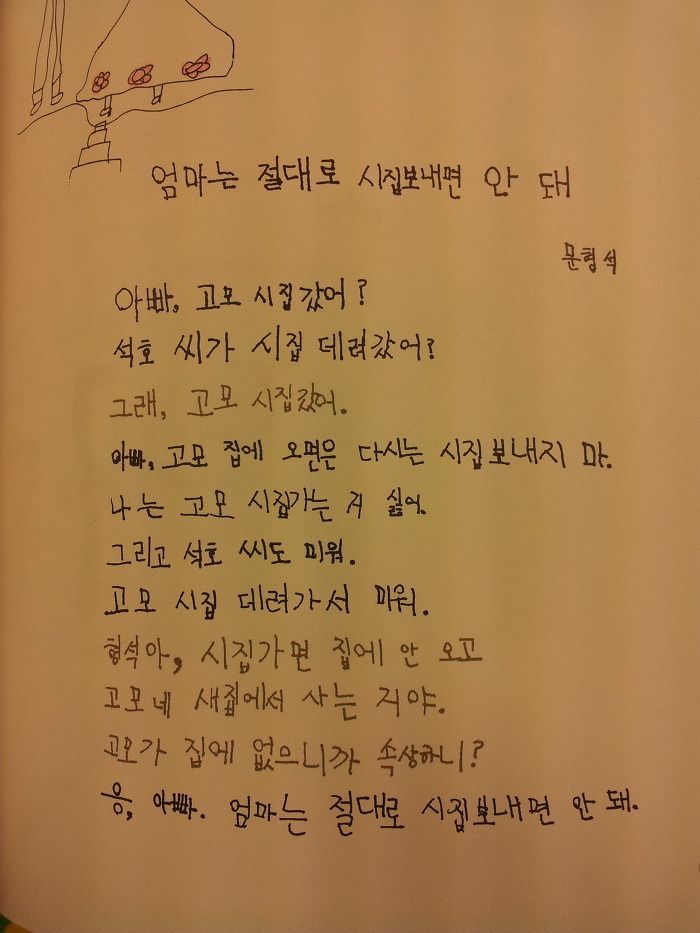 엄마는 절대로 시집보내면 안 돼
문형석
아빠, 고모 시집갔어?
석호 씨가 시집 데려갔어?
그래, 고모 시집갔어.
아빠, 고모 집에 오면은 다시는 시집보내지 마.
나는 고모 시집가는 거 싫어.
그리고 석호 씨도 미워.
고모 시집 데려가서 미워.
형석아, 시집가면 집에 안 오고
고모네 새집에서 사는 거야.
고모가 집에 없으니까 속상하니?
응, 아빠. 엄마는 절대로 시집보내면 안 돼.